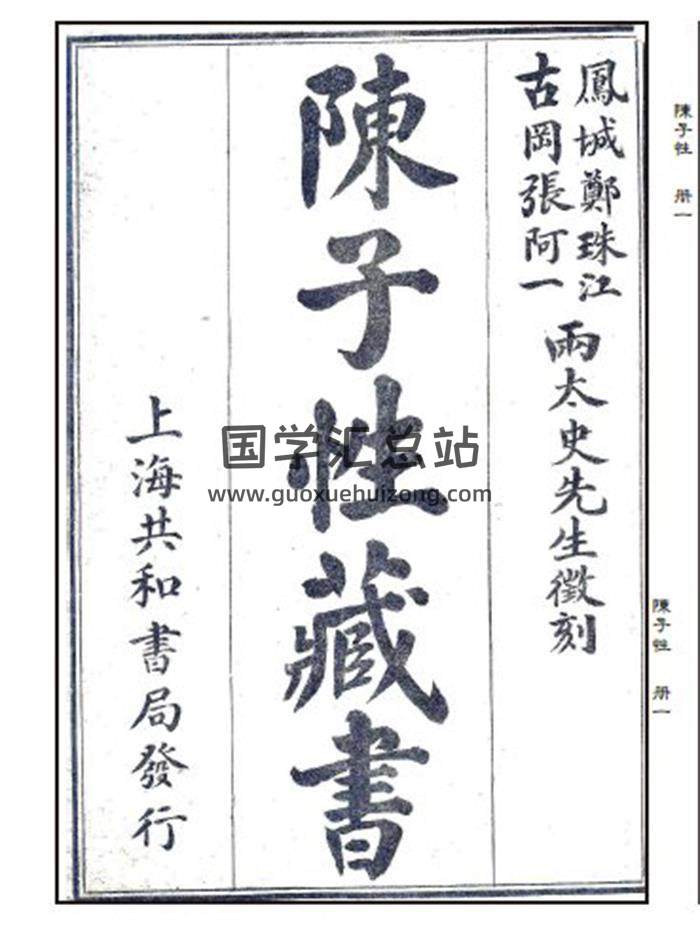 鳳城鄭珠江
古岡張阿一
兩太史先生徵刻
陳子性藏書
上海共和書局發行
国学汇总站
www.guoxuehuizong.com
陳子性 册一
陳子性 册一